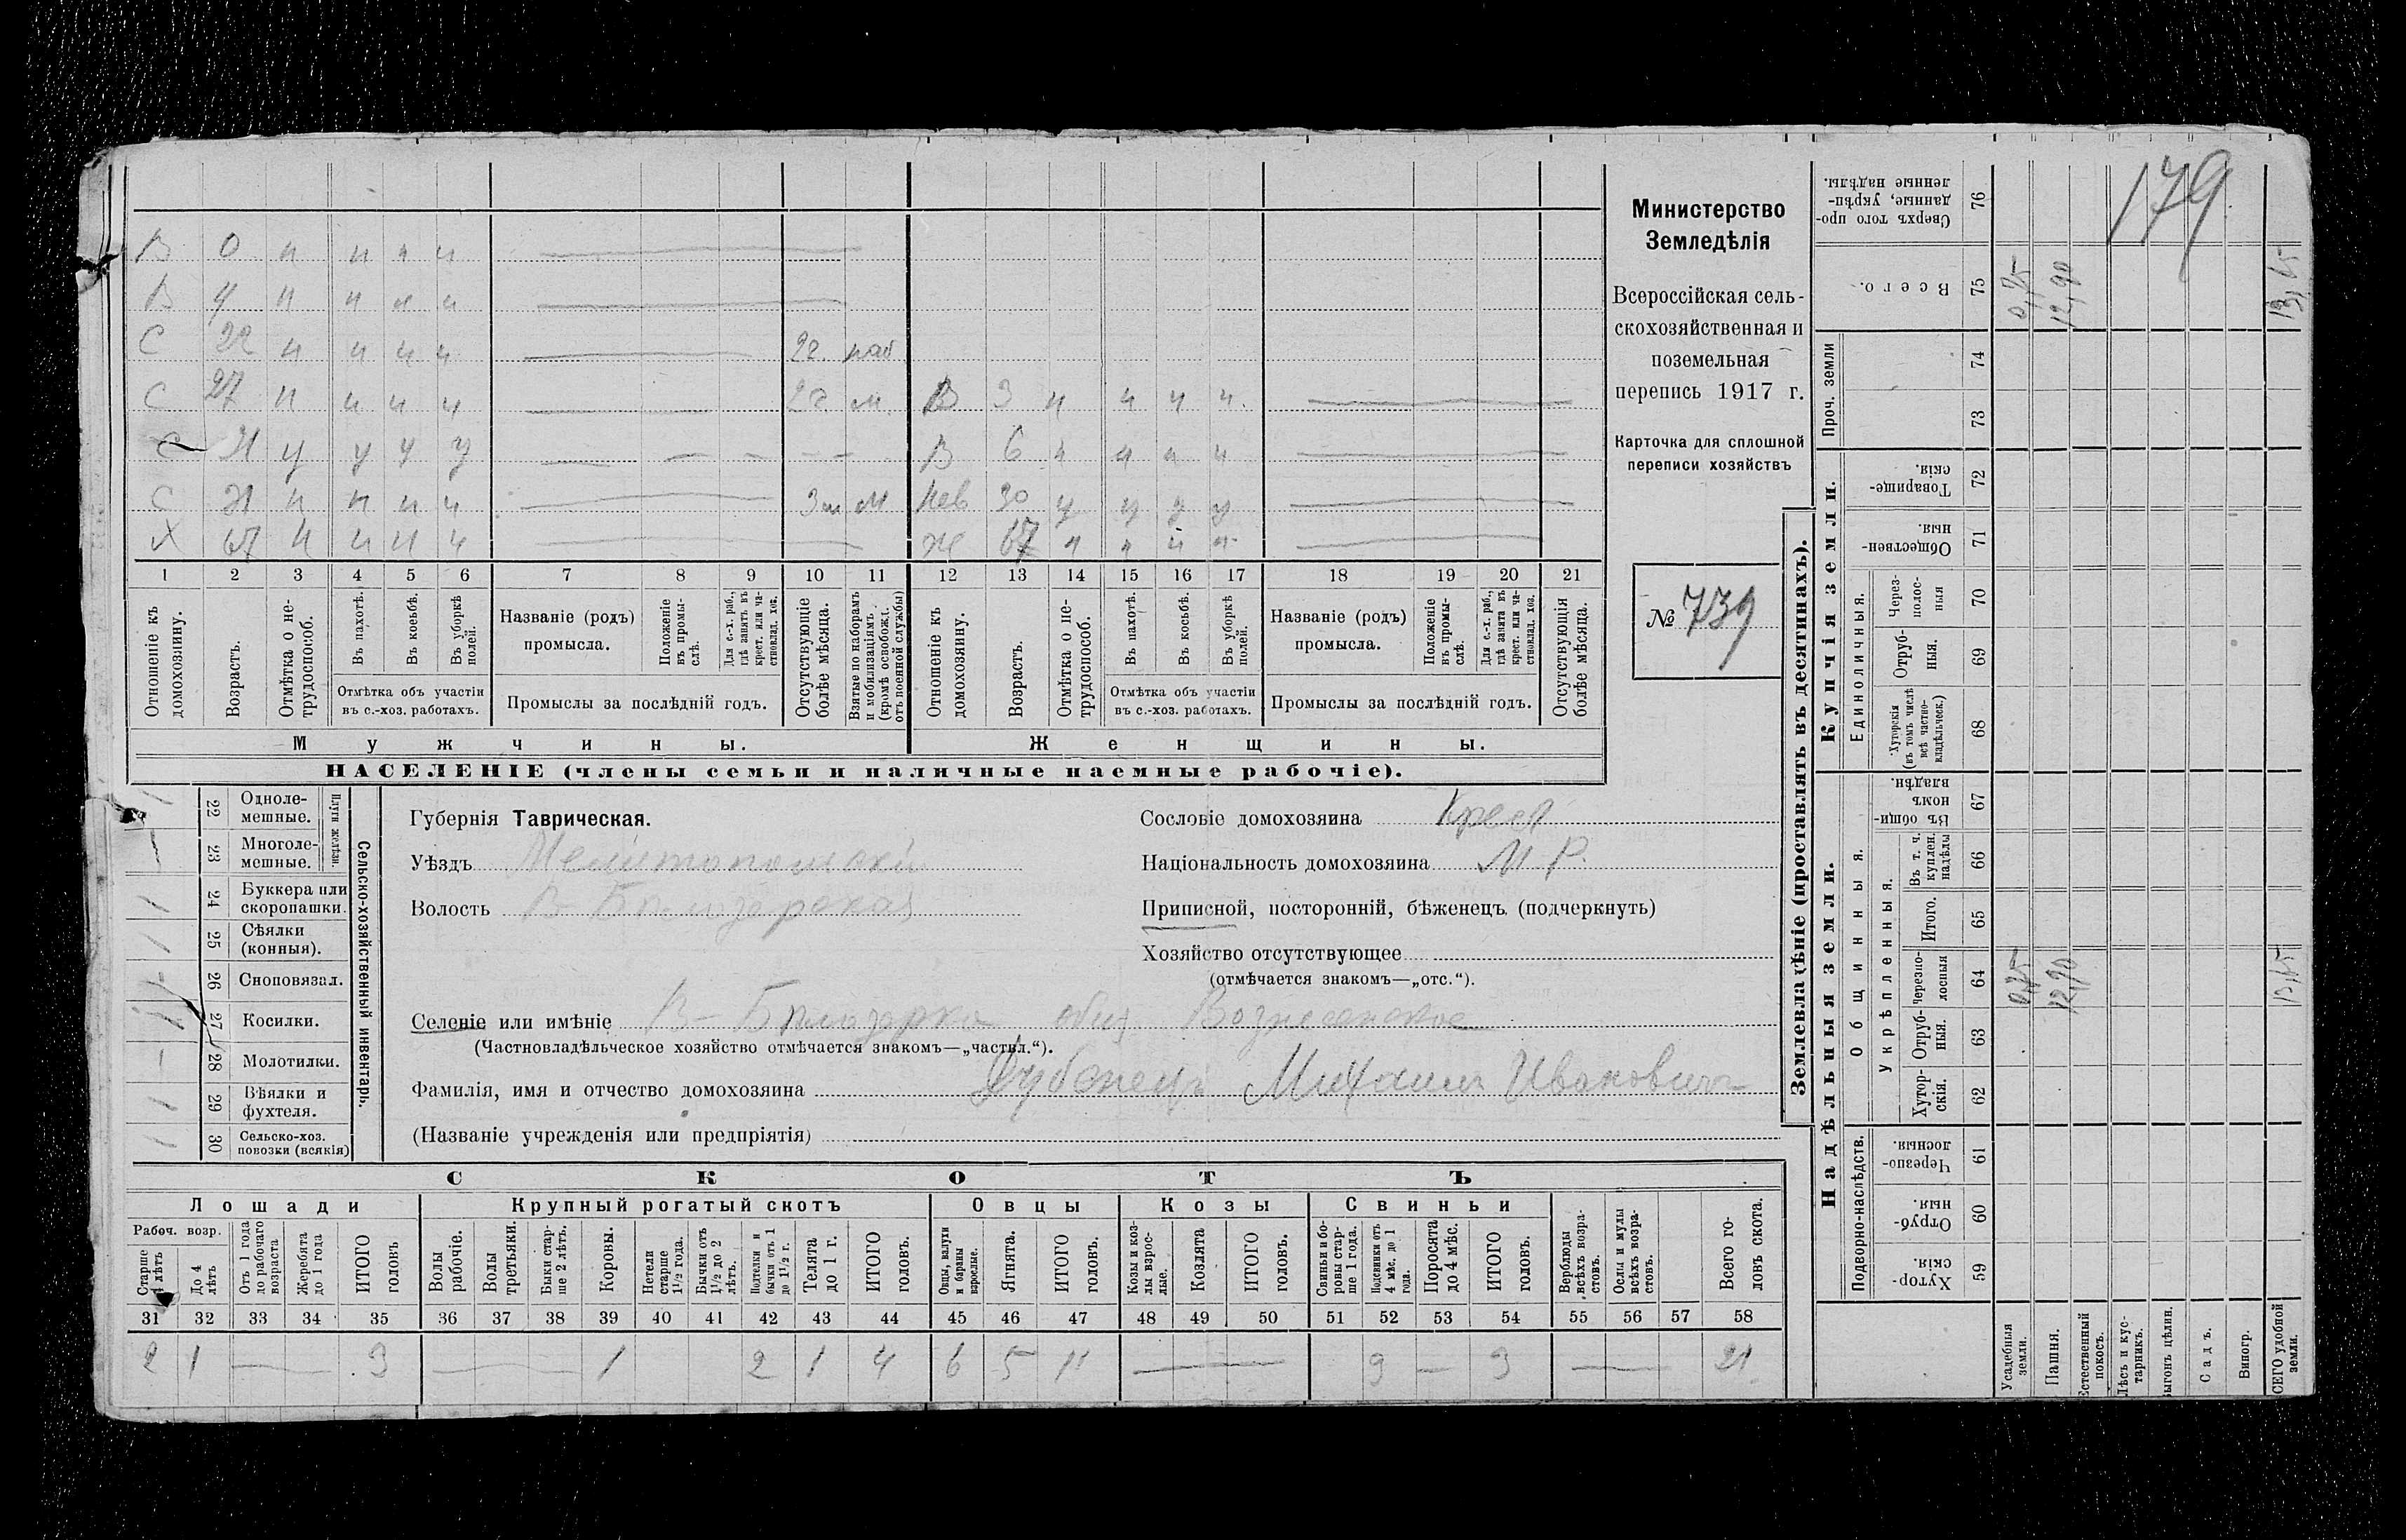 179
В 0 н н н н
В 4 н н н н
С 22 н н н н 2 г. наб
С 27 н н н н 2 г. м. В 3 н н н н
С 21 у у у у В 6 н н н н
С 21 н н н н 3 м м Нев 30 у у у у
Х 67 н н н н Ж 67 н н н н
1 2 3 4 5 6 7 8 9 10 11 12 13 14 15 16 17 18 19 20 21
Отношеніе къ домохозяину.
Возрастъ.
Отмѣтка о нетрудоспособ.
Въ пахотѣ.
Въ косьбѣ.
Въ уборкѣ полей.
Отмѣтка объ участіи въ с.-хоз. работахъ.
Названіе (родъ) промысла.
Положеніе въ промыслѣ.
Для с.-х. раб., гдѣ занятъ въ крест. или частновлад. хоз.
Промыслы за послѣдній годъ.
Отсутствующіе болѣе мѣсяца.
Взятые по наборамъ и мобилизаціямъ (кромѣ освобожд. отъ военной службы)
Отношеніе къ домохозяину.
Возрастъ.
Отмѣтка о нетрудоспособ.
Въ пахотѣ.
Въ косьбѣ.
Въ уборкѣ полей.
Отмѣтка объ участіи въ с.-хоз. работахъ.
Названіе (родъ) промысла.
Положеніе въ промыслѣ.
Для с.-х. раб., гдѣ занята въ крест. или частновлад. хоз.
Промыслы за послѣдній годъ.
Отсутствующія болѣе мѣсяца.
Мужчины. Женщины.
НАСЕЛЕНІЕ (члены семьи и наличные наемные рабочіе).
Министерство
Земледѣлія
Всероссійская сель-
скохозяйственная и
поземельная
перепись 1917 г.
Карточка для сплошной
переписи хозяйствъ
№ 739
Сельско-хозяйственный инвентарь.
Плуги желѣзн.
22 Однолемешные. 1
23 Многолемешные. —
24 Буккера или скоропашки. 1
25 Сѣялки (конныя). 1
26 Сноповязал. —
27 Косилки. 1
28 Молотилки. —
29 Вѣялки и фухтеля. 1
30 Сельско-хоз. повозки (всякія) 1
Губернія Таврическая.
Уѣздъ Мелитопольскій
Волость В-Бѣлозерская
Сословіе домохозяина Крест
Національность домохозяина М Р.
Приписной, посторонній, бѣженецъ (подчеркнуть)
Хозяйство отсутствующее
(отмѣчается знакомъ—„отс.“).
Селеніе или имѣніе В-Бѣлозерка общ Вознесенское
(Частновладѣльческое хозяйство отмѣчается знакомъ—„частвл.“).
Фамилія, имя и отчество домохозяина Дубенецъ Михаилъ Ивановичъ
(Названіе учрежденія или предпріятія)
СКОТЪ
Лошади Крупный рогатый скотъ Овцы Козы Свиньи
Рабоч. возр.
Старше 4 лѣтъ
До 4 лѣтъ
Отъ 1 года до рабочаго возраста
Жеребята до 1 года
ИТОГО головъ
Волы рабочіе.
Волы третьяки.
Быки старше 2 лѣтъ.
Коровы.
Нетели старше 1½ года.
Бычки отъ 1½ до 2 лѣтъ.
Подтелки и бычки отъ 1 до 1½ г.
Телята до 1 г.
ИТОГО головъ.
Овцы, валухи и бараны взрослые.
Ягнята.
ИТОГО головъ.
Козы и козлы взрослые.
Козлята
ИТОГО головъ.
Свиньи и боровы старше 1 года.
Подсвинки отъ 4 мѣс. до 1 года.
Поросята до 4 мѣс.
ИТОГО головъ.
Верблюды всѣхъ возрастовъ.
Ослы и мулы всѣхъ возрастовъ.
Всего головъ скота.
31 32 33 34 35 36 37 38 39 40 41 42 43 44 45 46 47 48 49 50 51 52 53 54 55 56 57 58
2 1 — 3 — 1 2 1 4 6 5 11 — 3 — 3 — 21
Землевладѣніе (проставлять въ десятинахъ).
Купчія земли.
Надѣльныя земли.
76 Сверхъ того проданные, укрѣпленные надѣлы.
75 Всего. 0,75 12,90 13,65
Проч. земли
74
73
72 Товарищескія.
71 Общественныя.
Единоличныя.
70 Черезполосныя
69 Отрубныя.
68 Хуторскія (въ томъ числѣ всѣ частновладѣльческ.)
Общинныя.
67 Въ общинномъ владѣн.
Укрѣпленныя.
66 Въ т. ч. куплен. надѣлы
65 Итого.
64 Черезполосныя 0,75 12,90 13,65
63 Отрубныя.
62 Хуторскія.
Подворно-наслѣдств.
61 Черезполосныя.
60 Отрубныя.
59 Хуторскія.
Усадебныя земли.
Пашня.
Естественный покосъ.
Лѣсъ и кустарникъ.
Выгонъ цѣлин.
Садъ.
Виногр.
ВСЕГО удобной земли.